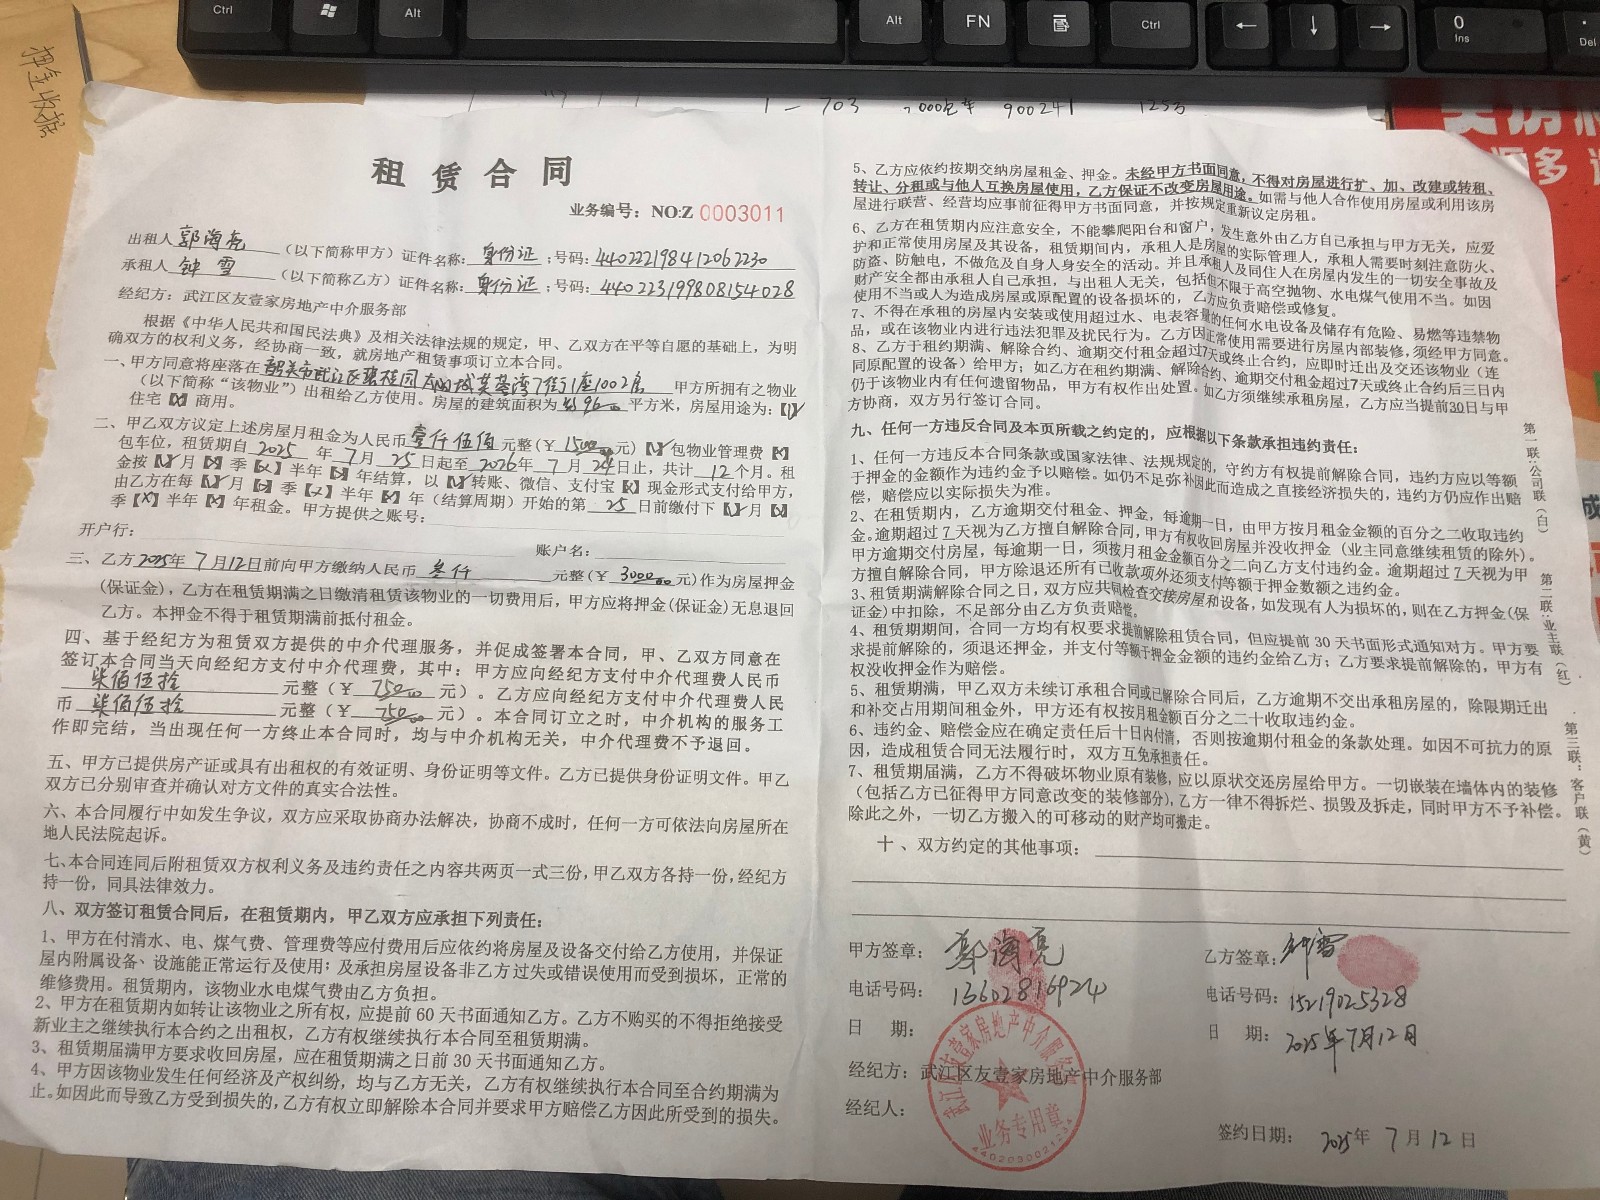 Ctrl
Alt
Alt
FN
Ctrl
←
↓
→
0
Ins
Del
押金收据
1-703
900241
125方
租赁合同
业务编号：NO:Z 0003011
出租人 郭海亮 （以下简称甲方）证件名称：身份证；号码：440222198412062230
承租人 钟雪 （以下简称乙方）证件名称：身份证；号码：440223199808154028
经纪方：武江区友壹家房地产中介服务部
根据《中华人民共和国民法典》及相关法律法规的规定，甲、乙双方在平等自愿的基础上，为明
确双方的权利义务，经协商一致，就房地产租赁事项订立本合同。
一、甲方同意将座落在 韶关市武江区碧桂园太阳城芙蓉湾7街1座1002房 甲方所拥有之物业
（以下简称“该物业”）出租给乙方使用。房屋的建筑面积为 96 平方米，房屋用途为：【√】
住宅【X】商用。
二、甲乙双方议定上述房屋月租金为人民币 壹仟伍佰 元整（￥1500.00元）【√】包物业管理费【X】
包车位，租赁期自 2025 年 7 月 25 日起至 2026 年 7 月 24 日止，共计 12 个月。租
金按【√】月【X】季【X】半年【X】年结算，以【√】转账、微信、支付宝【X】现金形式支付给甲方，
由乙方在每【√】月【X】季【X】半年【X】年（结算周期）开始的第 25 日前缴付下【√】月【X】
季【X】半年【X】年租金。甲方提供之账号：
开户行： 账户名：
三、乙方 2025年 7月12日前向甲方缴纳人民币 叁仟 元整（￥3000.00元）作为房屋押金
（保证金），乙方在租赁期满之日缴清租赁该物业的一切费用后，甲方应将押金(保证金)无息退回
乙方。本押金不得于租赁期满前抵付租金。
四、基于经纪方为租赁双方提供的中介代理服务，并促成签署本合同，甲、乙双方同意在
签订本合同当天向经纪方支付中介代理费，其中：甲方应向经纪方支付中介代理费人民币
柒佰伍拾 元整（￥750.00元）。乙方应向经纪方支付中介代理费人民
币 柒佰伍拾 元整（￥750.00元）。本合同订立之时，中介机构的服务工
作即完结，当出现任何一方终止本合同时，均与中介机构无关，中介代理费不予退回。
五、甲方已提供房产证或具有出租权的有效证明、身份证明等文件。乙方已提供身份证明文件。甲乙
双方已分别审查并确认对方文件的真实合法性。
六、本合同履行中如发生争议，双方应采取协商办法解决，协商不成时，任何一方可依法向房屋所在
地人民法院起诉。
七、本合同连同后附租赁双方权利义务及违约责任之内容共两页一式三份，甲乙双方各持一份，经纪方
持一份，同具法律效力。
八、双方签订租赁合同后，在租赁期内，甲乙双方应承担下列责任：
1、甲方在付清水、电、煤气费、管理费等应付费用后应依约将房屋及设备交付给乙方使用，并保证
屋内附属设备、设施能正常运行及使用；及承担房屋设备非乙方过失或错误使用而受到损坏，正常的
维修费用。租赁期内，该物业水电煤气费由乙方负担。
2、甲方在租赁期内如转让该物业之所有权，应提前60天书面通知乙方。乙方不购买的不得拒绝接受
新业主之继续执行本合约之出租权，乙方有权继续执行本合同至租赁期满。
3、租赁期届满甲方要求收回房屋，应在租赁期满之日前30天书面通知乙方。
4、甲方因该物业发生任何经济及产权纠纷，均与乙方无关，乙方有权继续执行本合同至合约期满为
止。如因此而导致乙方受到损失的，乙方有权立即解除本合同并要求甲方赔偿乙方因此所受到的损失。
5、乙方应依约按期交纳房屋租金、押金。未经甲方书面同意，不得对房屋进行扩、加、改建或转租、
转让、分租或与他人互换房屋使用，乙方保证不改变房屋用途。如需与他人合作使用房屋或利用该房
屋进行联营、经营均应事前征得甲方书面同意，并按规定重新议定房租。
6、乙方在租赁期内应注意安全，不能攀爬阳台和窗户，发生意外由乙方自己承担与甲方无关，应爱
护和正常使用房屋及其设备，租赁期间内，承租人是房屋的实际管理人，承租人需要时刻注意防火、
防盗、防触电，不做危及自身人身安全的活动。并且承租人及同住人在房屋内发生的一切安全事故及
财产安全都由承租人自己承担，与出租人无关，包括但不限于高空抛物、水电煤气使用不当。如因
使用不当或人为造成房屋或原配置的设备损坏的，乙方应负责赔偿或修复。
7、不得在承租的房屋内安装或使用超过水、电表容量的任何水电设备及储存有危险、易燃等违禁物
品，或在该物业内进行违法犯罪及扰民行为。乙方因正常使用需要进行房屋内部装修，须经甲方同意。
8、乙方于租约期满、解除合约、逾期交付租金超过7天或终止合约，应即时迁出及交还该物业（连
同原配置的设备）给甲方；如乙方在租约期满、解除合约、逾期交付租金超过7天或终止合约后三日内
仍于该物业内有任何遗留物品，甲方有权作出处置。如乙方须继续承租房屋，乙方应当提前30日与甲
方协商，双方另行签订合同。
九、任何一方违反合同及本页所载之约定的，应根据以下条款承担违约责任：
1、任何一方违反本合同条款或国家法律、法规规定的，守约方有权提前解除合同，违约方应以等额
于押金的金额作为违约金予以赔偿。如仍不足弥补因此而造成之直接经济损失的，违约方仍应作出赔
偿，赔偿应以实际损失为准。
2、在租赁期内，乙方逾期交付租金、押金，每逾期一日，由甲方按月租金金额的百分之二收取违约
金。逾期超过7天视为乙方擅自解除合同，甲方有权收回房屋并没收押金（业主同意继续租赁的除外）。
甲方逾期交付房屋，每逾期一日，须按月租金金额百分之二向乙方支付违约金。逾期超过7天视为甲
方擅自解除合同，甲方除退还所有已收款项外还须支付等额于押金数额之违约金。
3、租赁期满解除合同之日，双方应共同检查交接房屋和设备，如发现有人为损坏的，则在乙方押金(保
证金)中扣除，不足部分由乙方负责赔偿。
4、租赁期期间，合同一方均有权要求提前解除租赁合同，但应提前30天书面形式通知对方。甲方要
求提前解除的，须退还押金，并支付等额于押金金额的违约金给乙方；乙方要求提前解除的，甲方有
权没收押金作为赔偿。
5、租赁期满，甲乙双方未续订承租合同或已解除合同后，乙方逾期不交出承租房屋的，除限期迁出
和补交占用期间租金外，甲方还有权按月租金额百分之二十收取违约金。
6、违约金、赔偿金应在确定责任后十日内付清，否则按逾期付租金的条款处理。如因不可抗力的原
因，造成租赁合同无法履行时，双方互免承担责任。
7、租赁期届满，乙方不得破坏物业原有装修，应以原状交还房屋给甲方。一切嵌装在墙体内的装修
（包括乙方已征得甲方同意改变的装修部分），乙方一律不得拆烂、损毁及拆走，同时甲方不予补偿。
除此之外，一切乙方搬入的可移动的财产均可搬走。
十、双方约定的其他事项：
甲方签章：郭海亮 乙方签章：钟雪
电话号码：13602816924 电话号码：15219025328
日 期： 日 期：2025年7月12日
经纪方：武江区友壹家房地产中介服务部
经纪人：
签约日期：2025年 7月12日
武江区友壹家房地产中介服务部
业务专用章
第一联：公司联（白）
第二联：业主联（红）
第三联：客户联（黄）